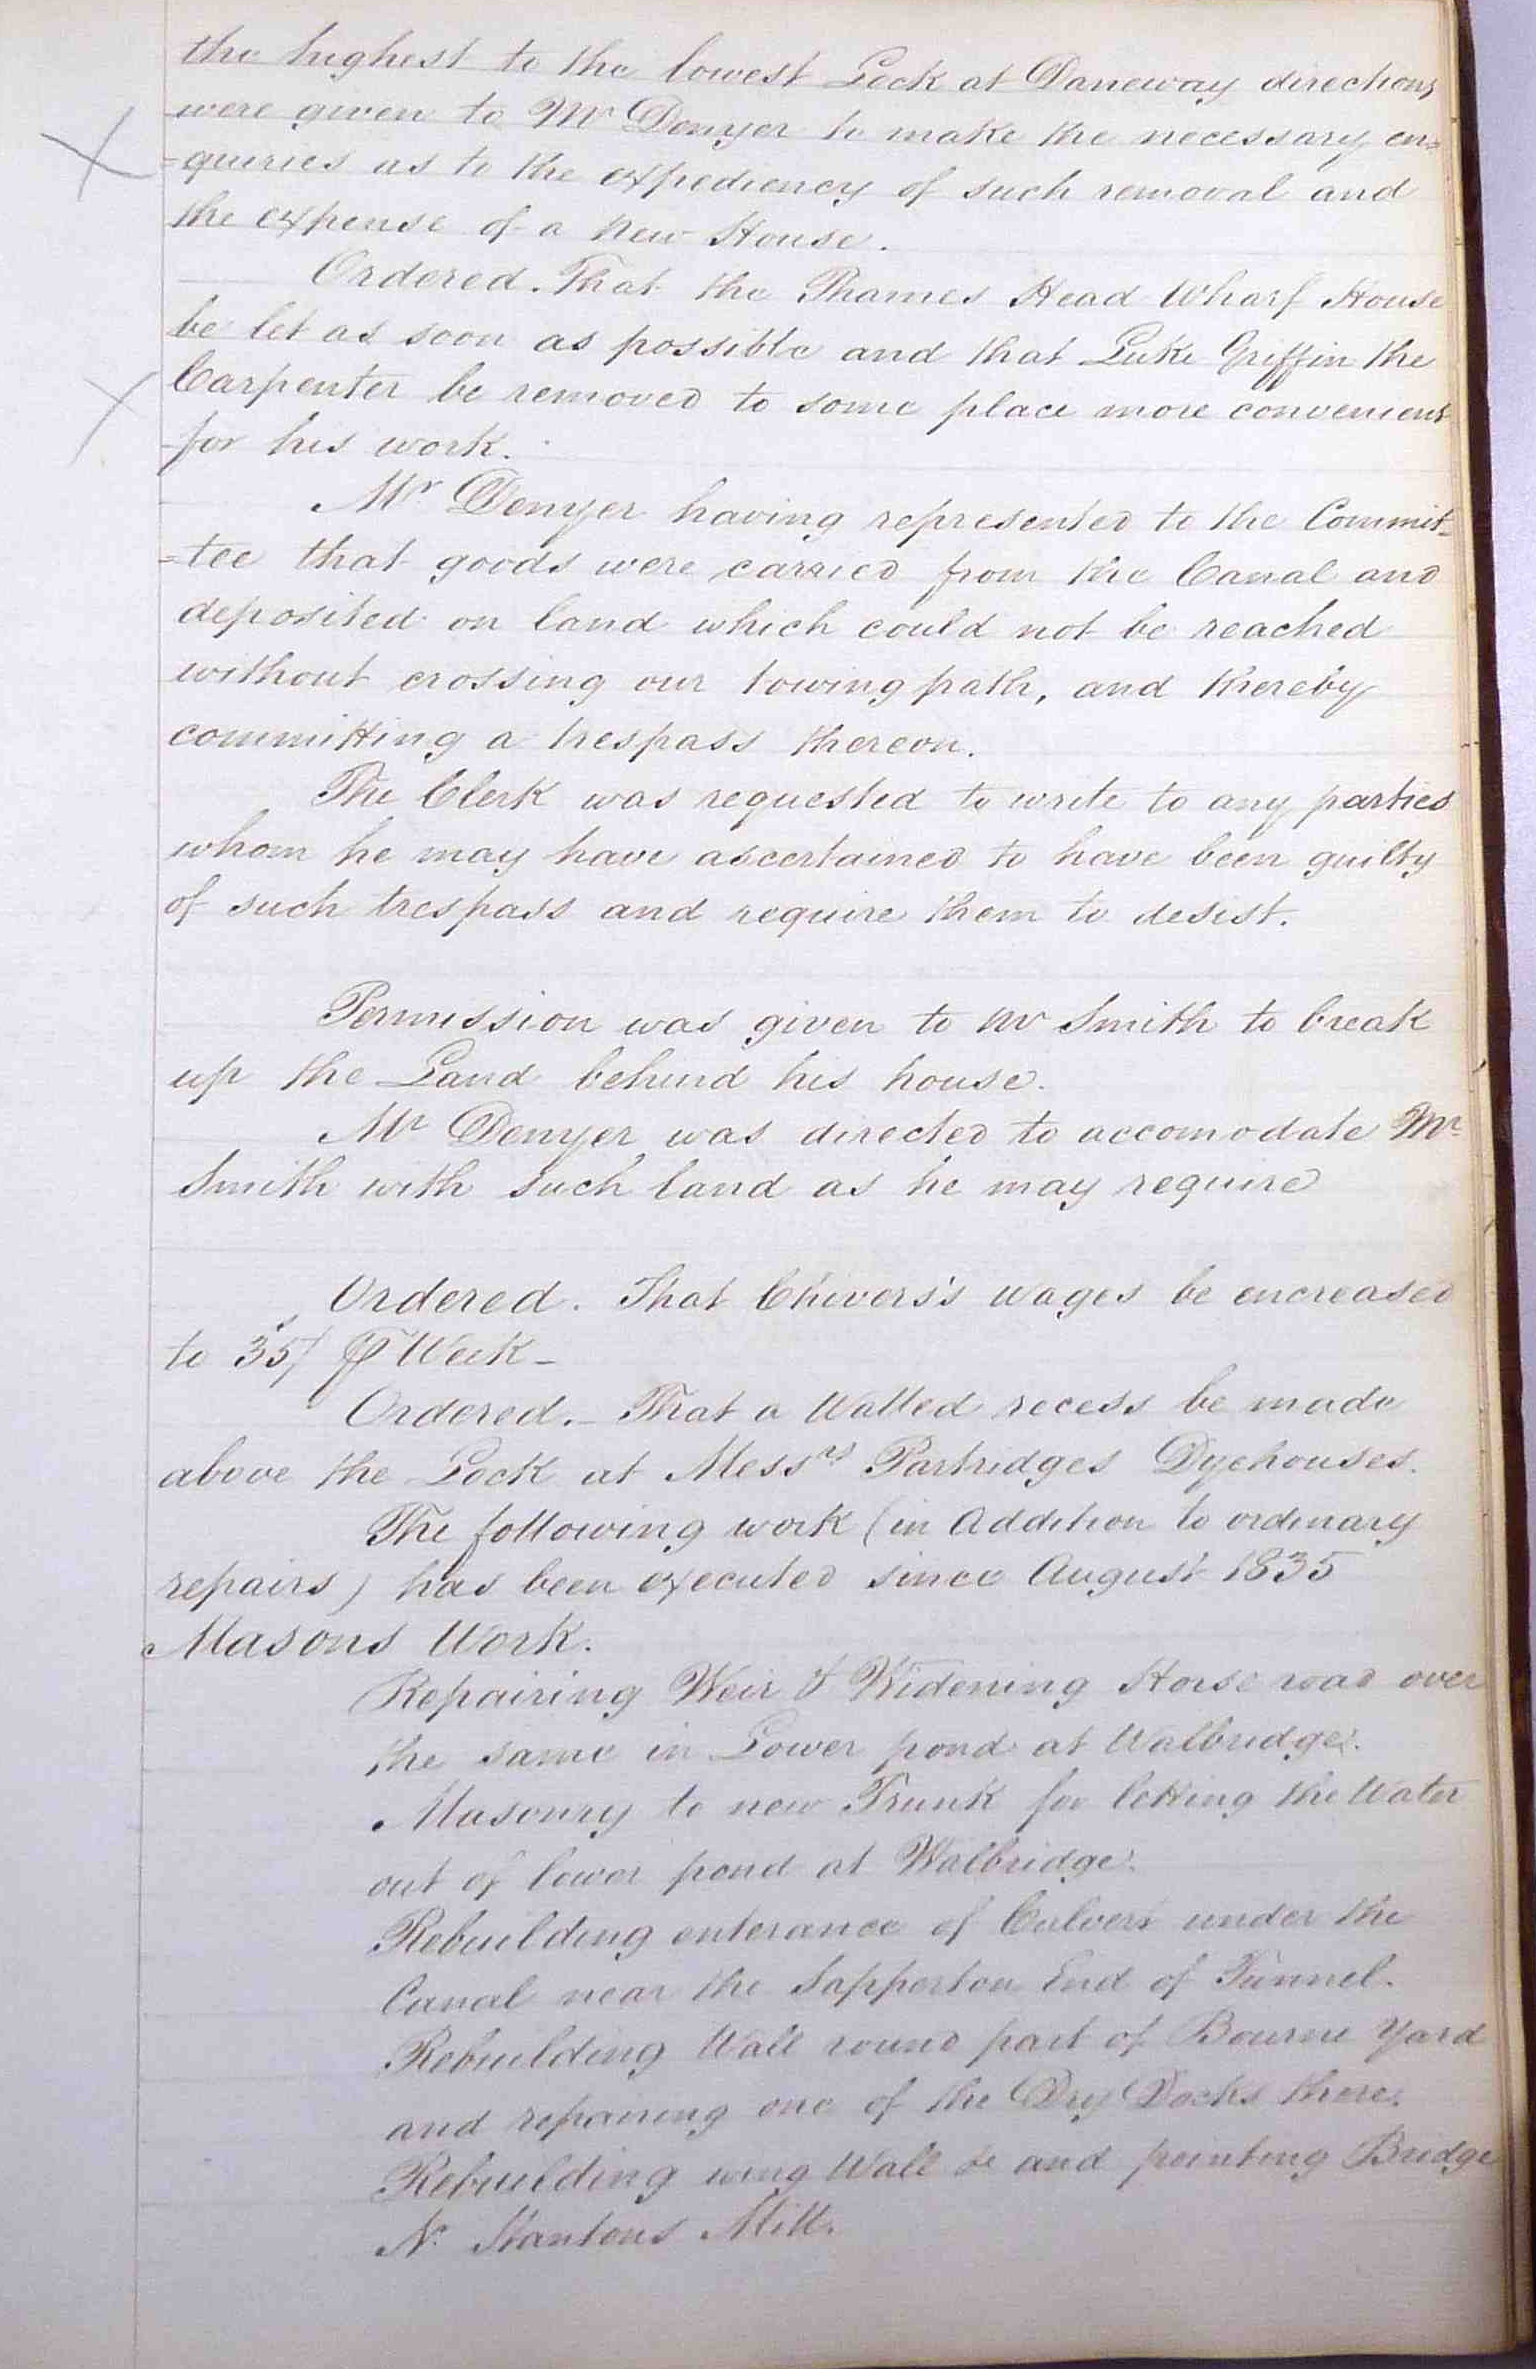 the highest to the lowest Lock at Daneway directions
were given to Mr Denyer to make the necessary en=
=quiries as to the expediency of such removal and
the expense of a new House.
Ordered. That the Thames Head Wharf House
be let as soon as possible and that Luke Griffin the
Carpenter be removed to some place more convenient
for his work.
Mr Denyer having represented to the Commit=
=tee that goods were carried from the Canal and
deposited on land which could not be reached
without crossing our towing path, and thereby
committing a trespass thereon.
The Clerk was requested to write to any parties
whom he may have ascertained to have been guilty
of such trespass and require them to desist.
Permission was given to Mr Smith to break
up the Land behind his house.
Mr Denyer was directed to accomodate Mr
Smith with such land as he may require
Ordered. That Chivers's wages be encreased
to 35s/ ⅌ Week_
Ordered._ That a Walled recess be made
above the Lock at Messrs Partridges Dyehouses.
The following work (in Addition to ordinary
repairs) has been executed since August 1835
Masons Work.
Repairing Weir & Widening Horse road over
the same in Lower pond at Walbridge.
Masonry to new Trunk for letting the Water
out of lower pond at Walbridge.
Rebuilding enterance of Culvert under the
Canal near the Sapperton End of Tunnel.
Rebuilding Wall round part of Bourne Yard
and repairing one of the Dry Docks there.
Rebuilding wing Wall &c and pointing Bridge
Nr Stantons Mill.